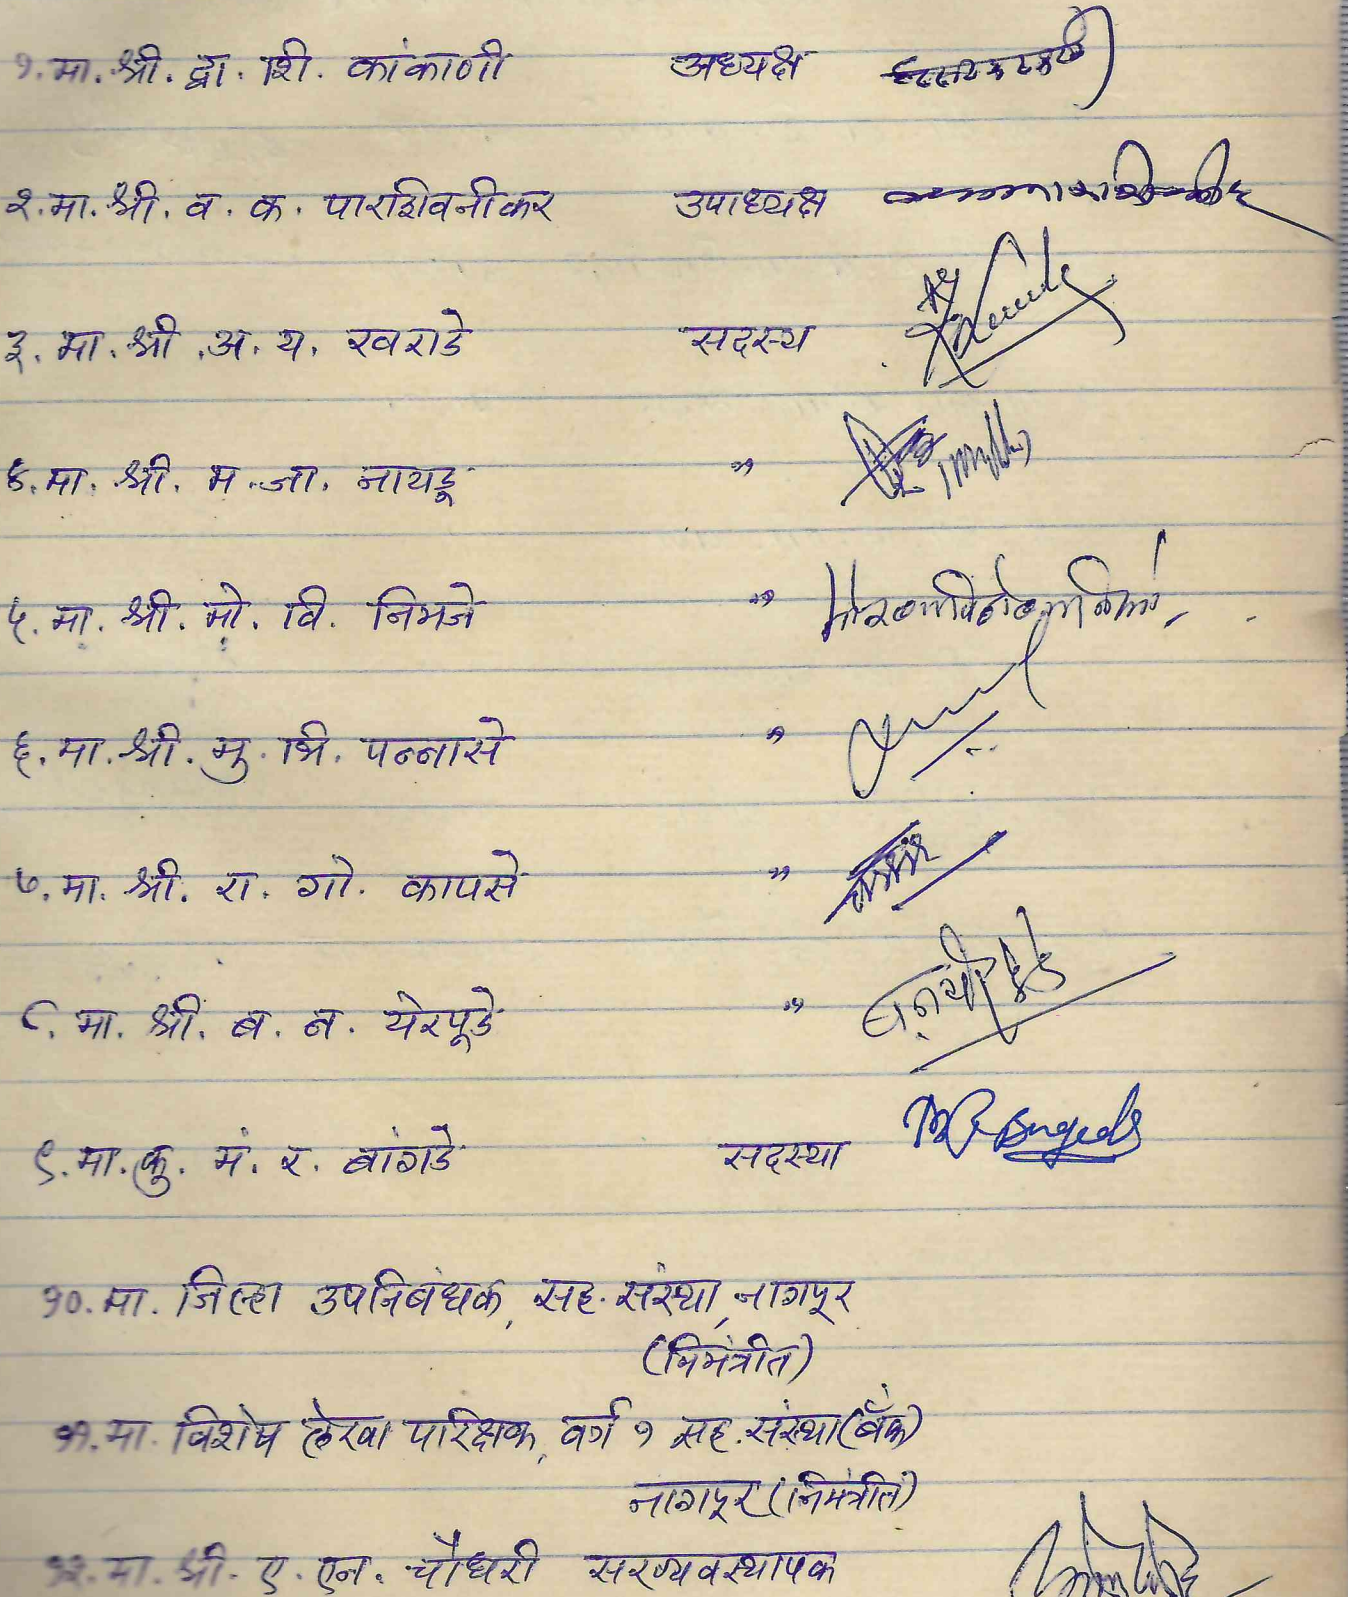 १. मा. श्री. द्वा. शि. कांकाणी अध्यक्ष
२. मा. श्री. व. क. पारशिवनीकर उपाध्यक्ष
३. मा. श्री. अ. य. खराडे सदस्य
४. मा. श्री. म. जा. नायडू "
५. मा. श्री. मो. वि. निमजे "
६. मा. श्री. मु. भि. पन्नासे "
७. मा. श्री. रा. गो. कापसे "
८. मा. श्री. ब. न. येरपूडे "
९. मा. कु. मं. र. बांगडे सदस्या
१०. मा. जिल्हा उपनिबंधक, सह. संस्था, नागपूर
(निमंत्रीत)
११. मा. विशेष लेखा परिक्षक, वर्ग १ सह. संस्था (बँक)
नागपूर (निमंत्रीत)
१२. मा. श्री. ए. एन. चौधरी सरव्यवस्थापक